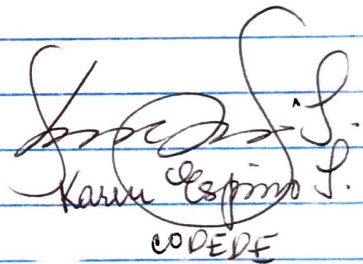 Karin Espino S.
CODEDE